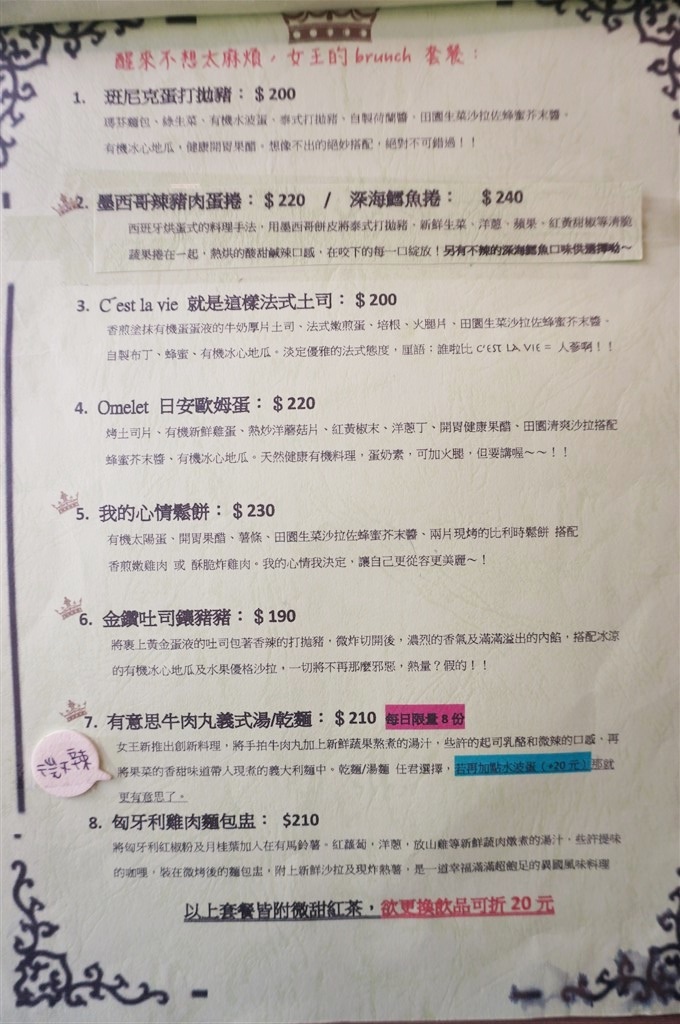 醒來不想太麻煩，女王的brunch 套餐：
1. 班尼克蛋打拋豬：$200
瑪芬麵包、綠生菜、有機水波蛋、泰式打拋豬、自製荷蘭醬、田園生菜沙拉佐蜂蜜芥末醬、
有機冰心地瓜，健康開胃果醋。想像不出的絕妙搭配，絕對不可錯過！！
2. 墨西哥辣豬肉蛋捲：$220 / 深海鱈魚捲： $240
西班牙烘蛋式的料理手法，用墨西哥餅皮將泰式打拋豬、新鮮生菜、洋蔥、蘋果、紅黃甜椒等清脆
蔬果捲在一起，熱烘的酸甜鹹辣口感，在咬下的每一口綻放！另有不辣的深海鱈魚口味供選擇呦～
3. C'est la vie 就是這樣法式土司：$200
香煎塗抹有機蛋蛋液的牛奶厚片土司、法式嫩煎蛋、培根、火腿片、田園生菜沙拉佐蜂蜜芥末醬、
自製布丁、蜂蜜、有機冰心地瓜。淡定優雅的法式態度，厘語：誰啦比 C'EST LA VIE = 人蔘啊！！
4. Omelet 日安歐姆蛋：$220
烤土司片、有機新鮮雞蛋、熱炒洋蘑菇片、紅黃椒末、洋蔥丁、開胃健康果醋、田園清爽沙拉搭配
蜂蜜芥末醬、有機冰心地瓜。天然健康有機料理，蛋奶素，可加火腿，但要講喔～～！！
5. 我的心情鬆餅：$230
有機太陽蛋、開胃果醋、薯條、田園生菜沙拉佐蜂蜜芥末醬、兩片現烤的比利時鬆餅 搭配
香煎嫩雞肉 或 酥脆炸雞肉。我的心情我決定，讓自己更從容更美麗～！
6. 金鑽吐司鑲豬豬：$190
將裹上黃金蛋液的吐司包著香辣的打拋豬，微炸切開後，濃烈的香氣及滿滿溢出的內餡，搭配冰涼
的有機冰心地瓜及水果優格沙拉，一切將不再那麼邪惡，熱量？假的！！
7. 有意思牛肉丸義式湯/乾麵：$210 每日限量 8 份
女王新推出創新料理，將手拍牛肉丸加上新鮮蔬果熬煮的湯汁，些許的起司乳酪和微辣的口感，再
微辣
將果菜的香甜味道帶入現煮的義大利麵中。乾麵/湯麵 任君選擇，若再加點水波蛋（+20 元）那就
更有意思了。
8. 匈牙利雞肉麵包盅： $210
將匈牙利紅椒粉及月桂葉加入在有馬鈴薯、紅蘿蔔，洋蔥，放山雞等新鮮蔬肉燉煮的湯汁，些許提味
的咖哩，裝在微烤後的麵包盅，附上新鮮沙拉及現炸熱薯，是一道幸福滿滿超飽足的異國風味料理
以上套餐皆附微甜紅茶，欲更換飲品可折 20 元